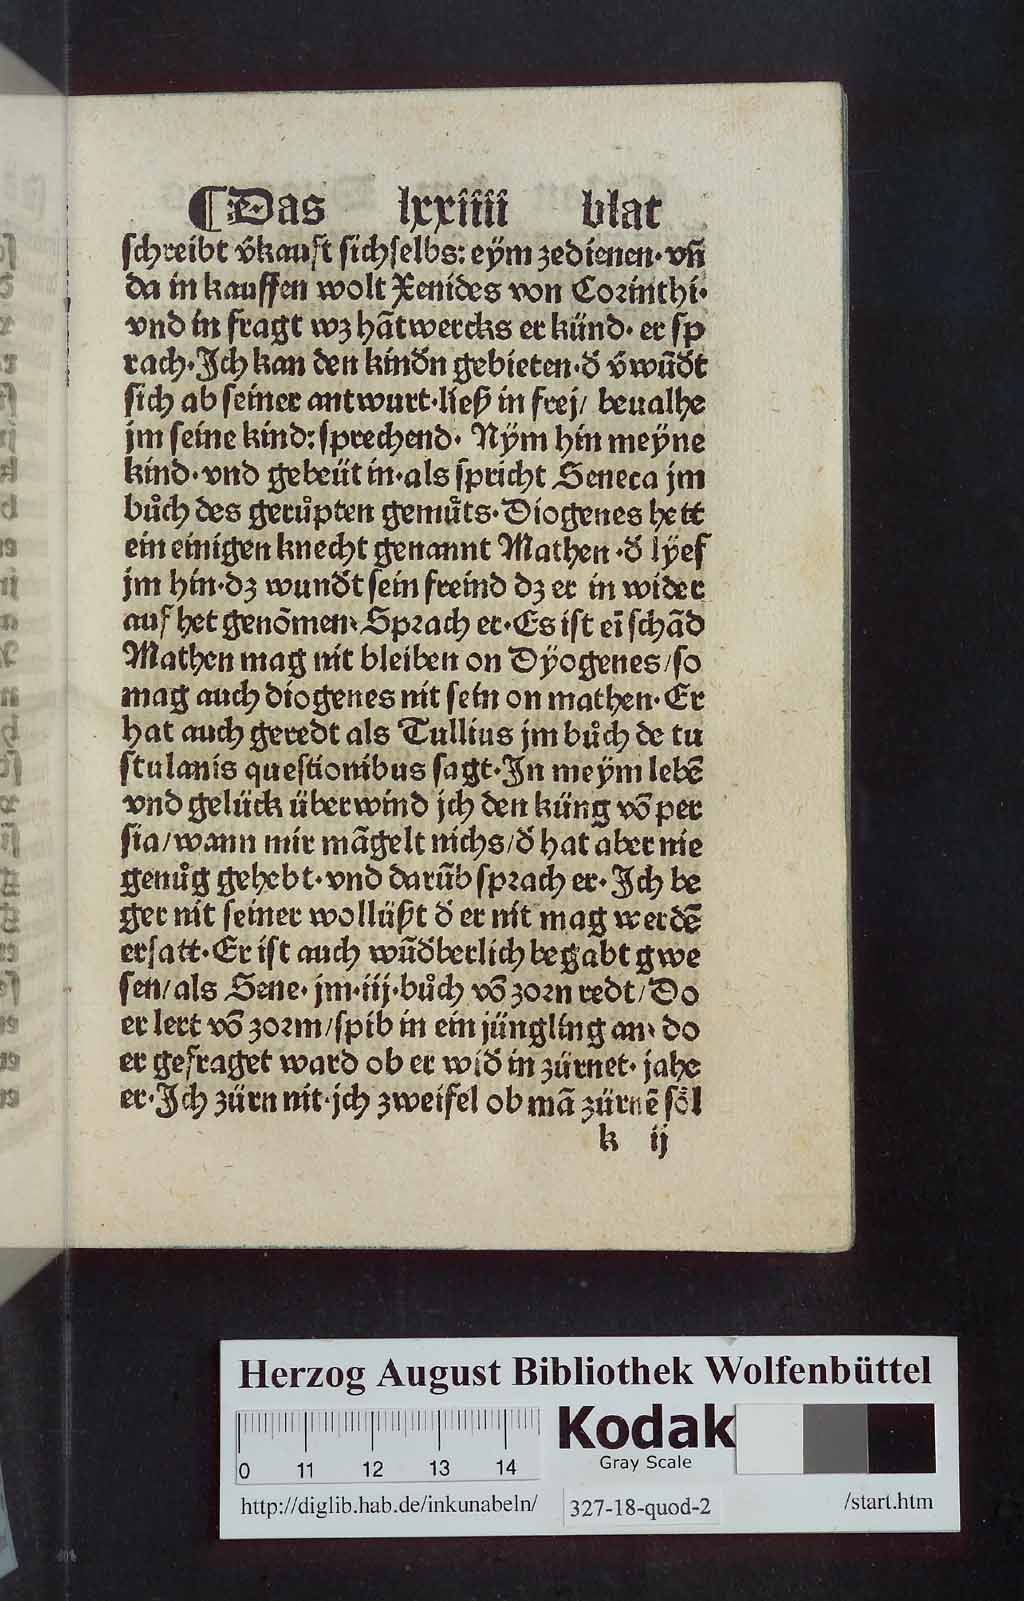 ¶Das lxxiiii blat
schreibt v̄kauft sichselbs: eÿm zedienen· vn̄
da in kauffen wolt Xenides von Corinthi·
vnd in fragt wz hātwercks er künd· er sp
rach·Jch kan den kindn̄ gebieten·d̄ v̄wūdt
sich ab seiner antwurt·ließ in frej/ beualhe
jm seine kind: sprechend· Nÿm hin meÿne
kind·vnd gebeüt in·als spricht Seneca jm
bůch des gerůpten gemůts·Diogenes hett
ein einigen knecht genannt Mathen·d̄ lÿef
jm hin·dz wund̄t sein freind dz er in wider
auf het genōmen· Sprach er·Es ist eī schād
Mathen mag nit bleiben on Dÿogenes/so
mag auch diogenes nit sein on mathen·Er
hat auch geredt als Tullius jm bůch de tu
stulanis questionibus sagt·Jn meÿm lebē
vnd gelück überwind jch den küng vō per
sia/wann mir māgelt nichs/d̄ hat aber nie
genůg gehebt·vnd darūb sprach er·Jch be
ger nit seiner wollüßt d̄ er nit mag werdē
ersatt·Er ist auch wūdberlich begabt gwe
sen/als Sene· jm·iij·bůch vō zorn redt/Do
er lert vō zorm/spib in ein jüngling an· do
er gefraget ward ob er wid̄ in zürnet· jahe
er·Jch zürn nit·jch zweifel ob mā zürnē söl
k ij
Herzog August Bibliothek Wolfenbüttel
Kodak
Gray Scale
0 11 12 13 14
http://diglib.hab.de/inkunabeln/ 327-18-quod-2 /start.htm